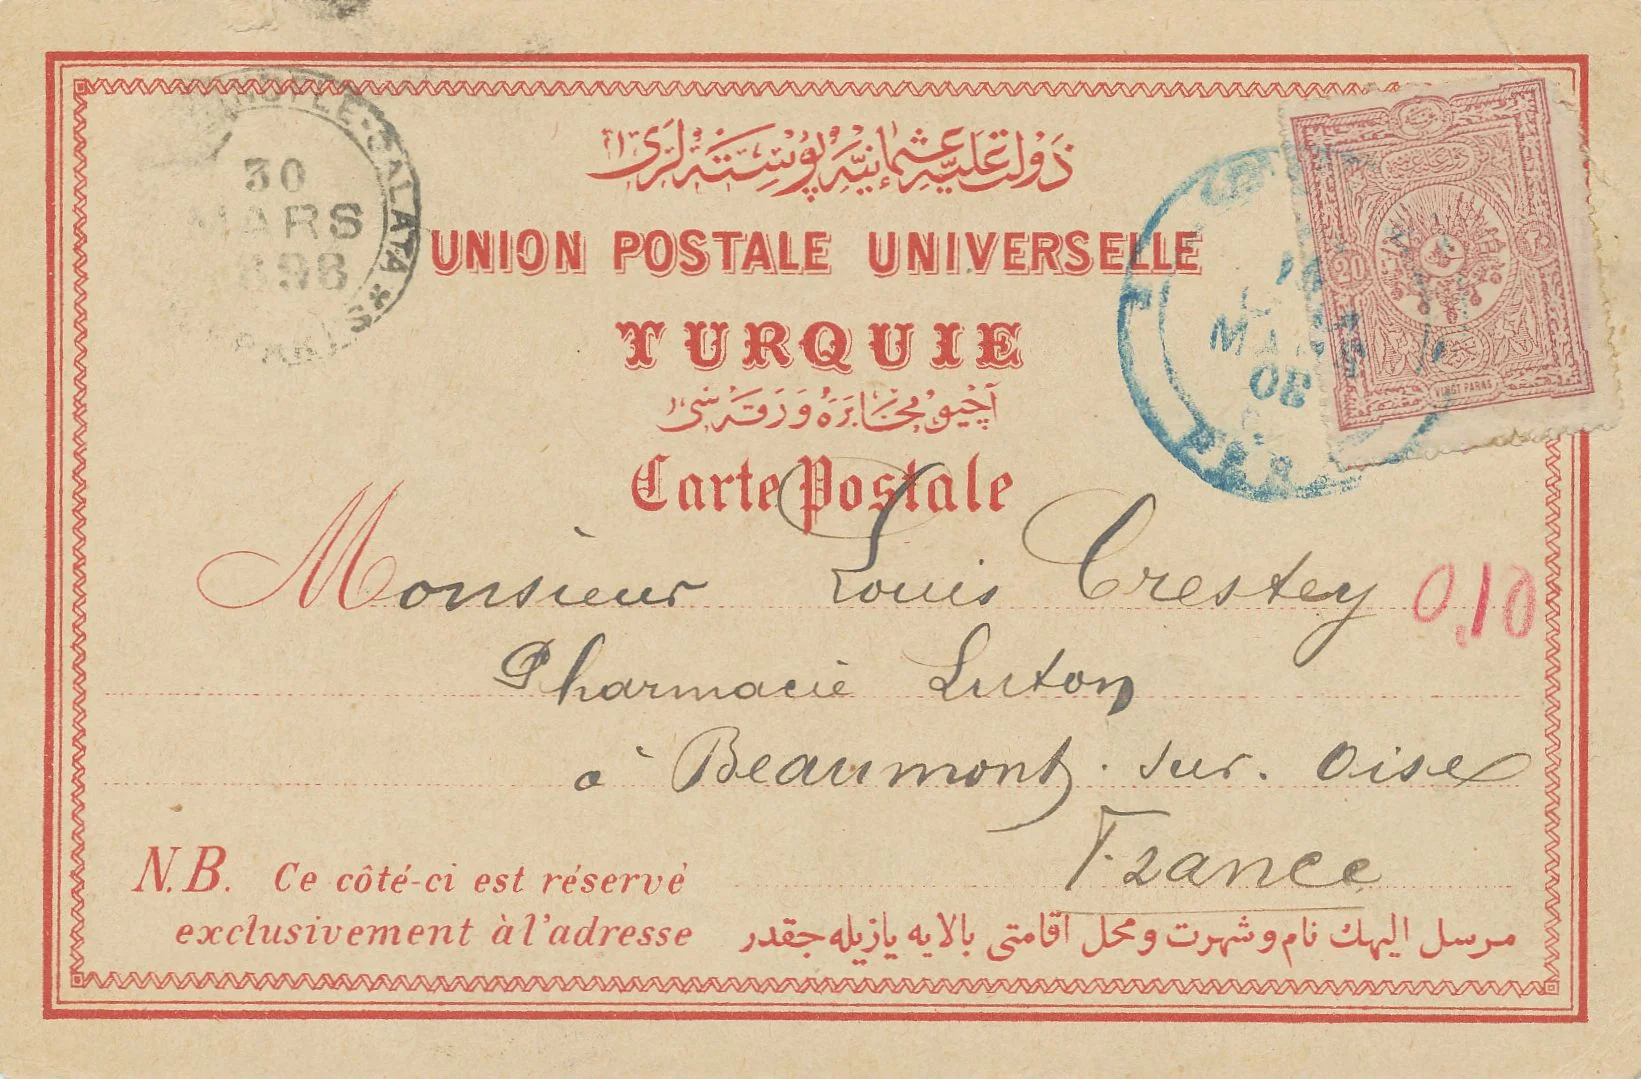 دولت عليۀ عثمانيه پوسته لرى
UNION POSTALE UNIVERSELLE
TURQUIE
آچيق مخابره ورقه سى
Carte Postale
GALATA
30
MARS
PARIS
MARS
20
VINGT PARAS
Monsieur Louis Crestey
0,10
Pharmacie Luton
à Beaumont. sur. Oise
France
N.B. Ce côté-ci est réservé
exclusivement à l'adresse
مرسل اليهك نام و شهرت و محل اقامتى بالايه يازيله جقدر